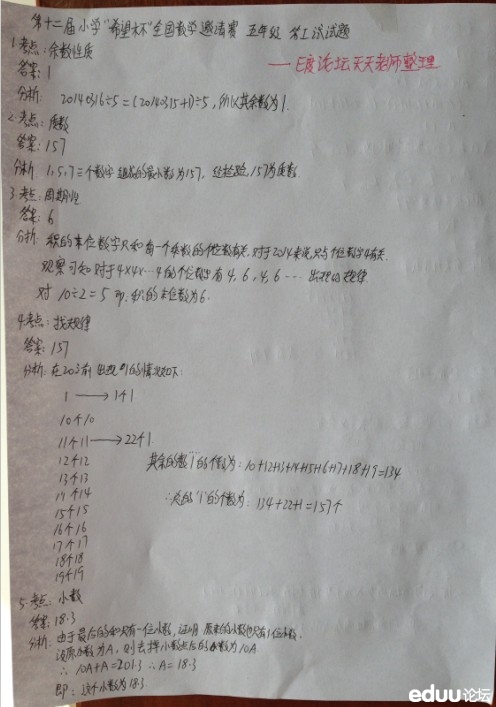 第十二届小学"希望杯"全国数学邀请赛 五年级 第I试试题
——E度论坛天天老师整理
1.考点:余数性质
答案:1
分析: 20140316÷5=(20140315+1)÷5,所以其余数为1.
2.考点:质数
答案:157
分析:1、5、7三个数字组成的最小数为157,经检验,157为质数.
3.考点:周期性
答案:6
分析:积的末位数字只和每一个乘数的个位数有关,对于2014来说,只与个位数字4有关.
观察可知对于4×4×…4的个位数字有4,6,4,6…出现的规律.
对10÷2=5 即,积的末位数为6.
4.考点:找规律
答案:157
分析:在20之前出现"1"的情况如下:
1→1个1
10个10
11个11→22个1
12个12
13个13
14个14
15个15
16个16
17个17
18个18
19个19
其余的数"1"的个数为:10+12+13+14+15+16+17+18+19=134
∴总的"1"的个数为:134+22+1=157个
5.考点:小数
答案:18.3
分析:由于最后的和只有一位小数,证明原来的小数也只有1位小数.
设原小数为A,则去掉小数点后的数为10A
∴10A+A=201.3 ∴A=18.3
即:这个小数为18.3.
eduu论坛